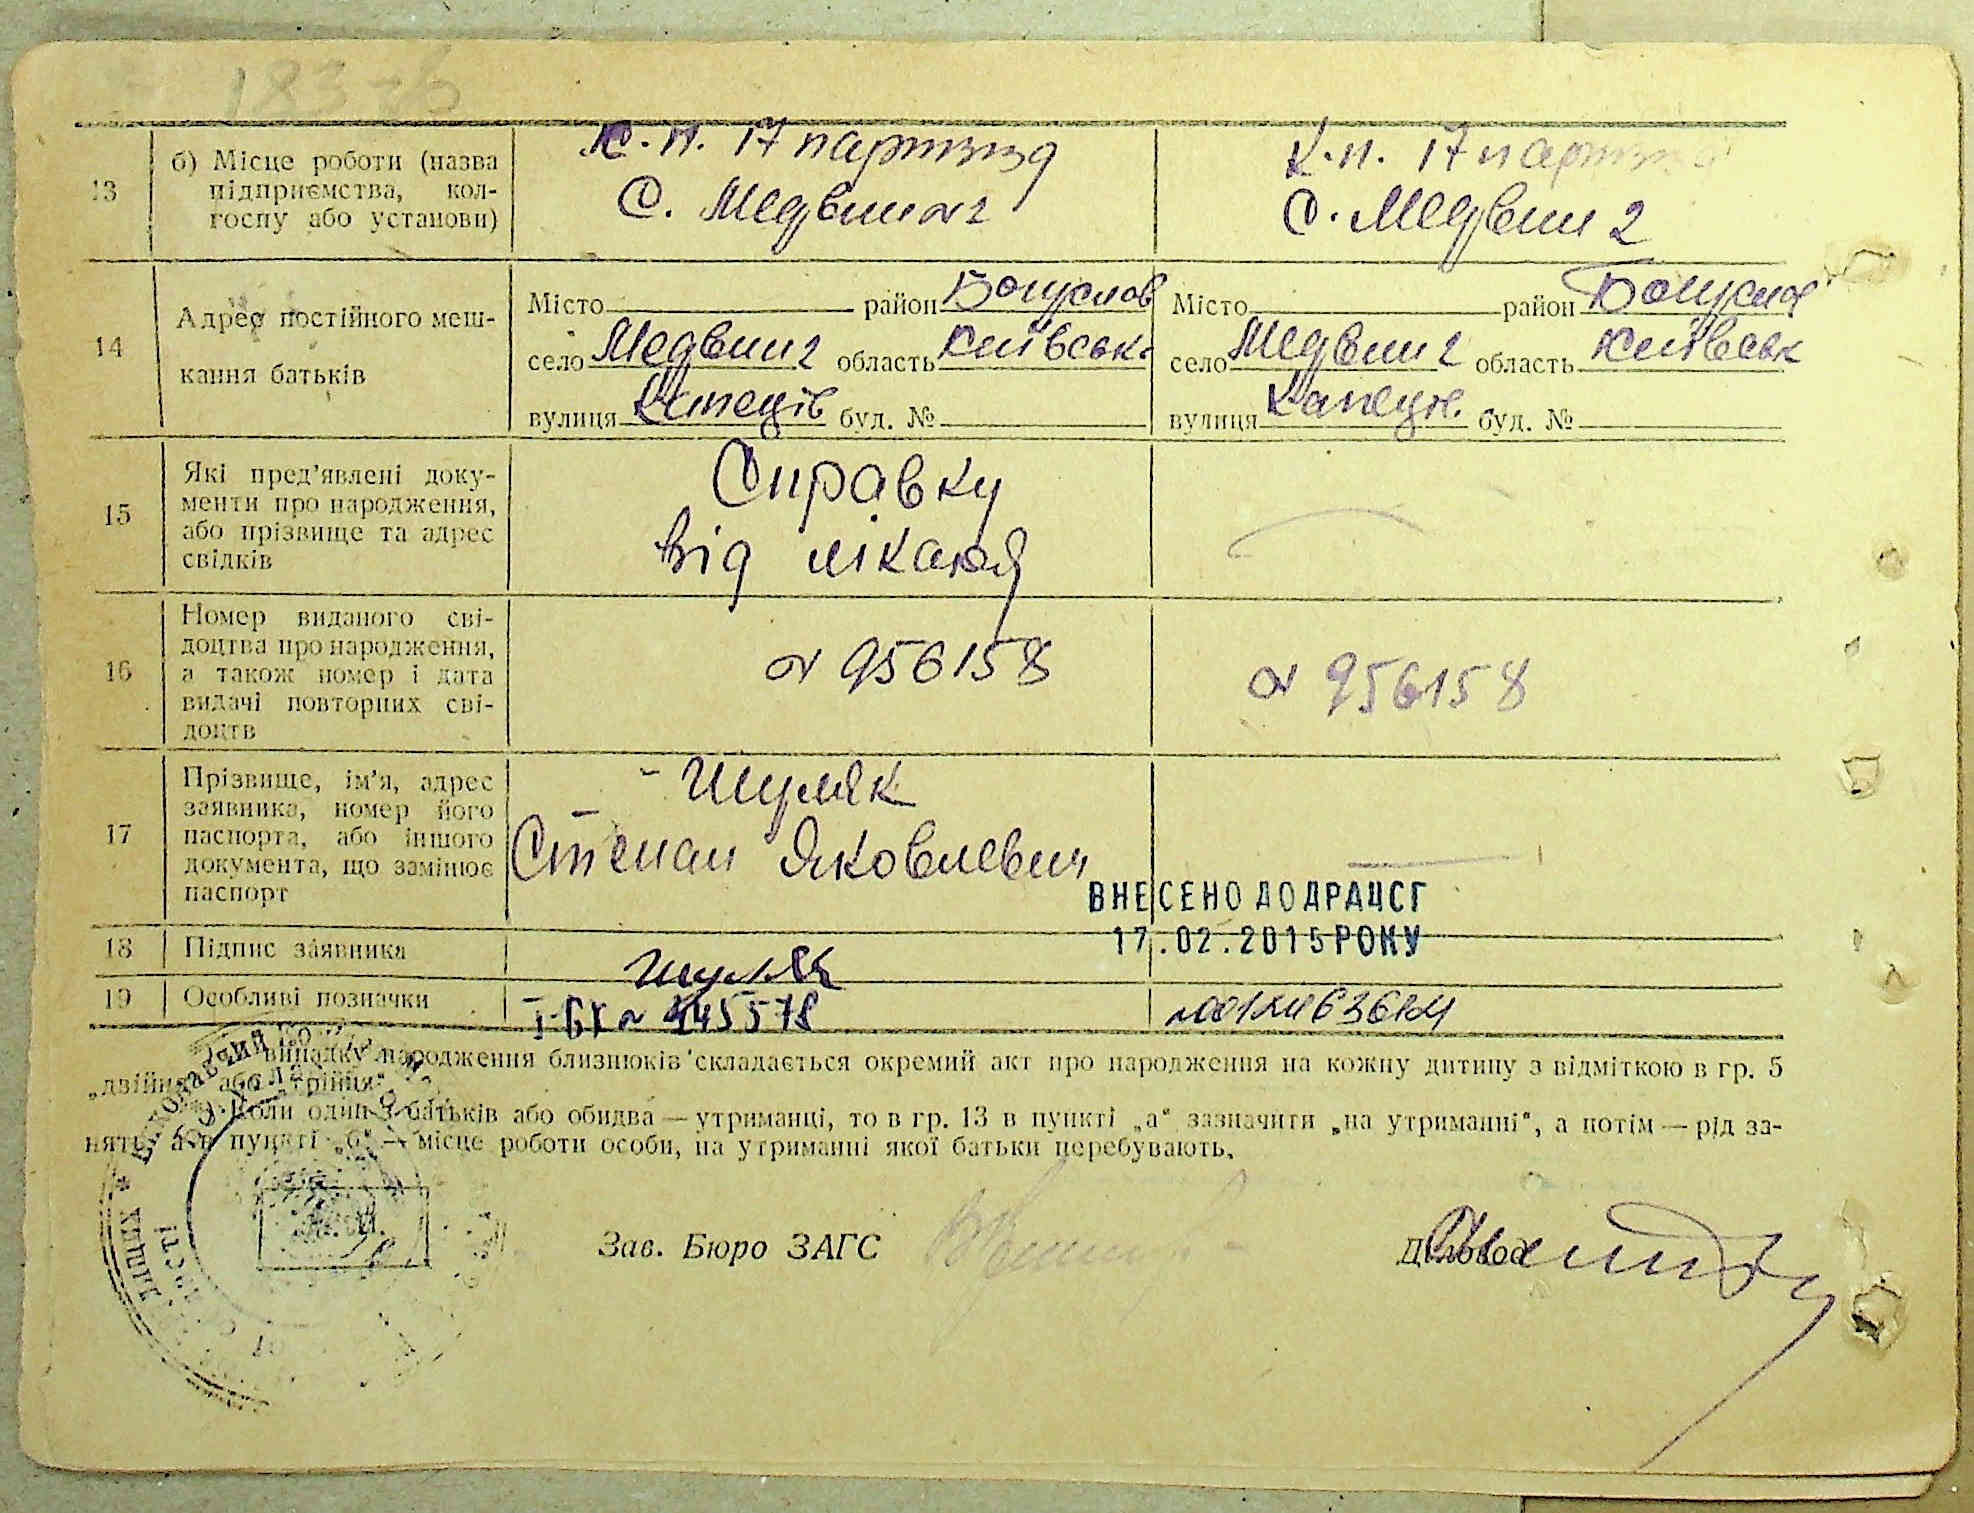 183-зв
13
б) Місце роботи (назва
підприємства, кол-
госпу або установи)
К.п. 17 партззд
С. Медвин 2
К.п. 17 партз
С. Медвин 2
14
Адрес постійного меш-
кання батьків
Місто район Богуслав
село Медвин 2 область Київськ
вулиця Капеців буд. №
Місто район Богуслав
село Медвин 2 область Київськ
вулиця Капеців буд. №
15
Які пред'явлені доку-
менти про народження,
або прізвище та адрес
свідків
Справку
від лікаря
16
Номер виданого сві-
доцтва про народження,
а також номер і дата
видачі повторних сві-
доцтв
№ 956158
№ 956158
17
Прізвище, ім'я, адрес
заявника, номер його
паспорта, або іншого
документа, що замінює
паспорт
Шуляк
Степан Яковлевич
ВНЕСЕНО ДО ДРАЦСГ
17.02.2015 РОКУ
18
Підпис заявника
Шуляк
19
Особливі позначки
І-БК № 445578
випадку народження близнюків складається окремий акт про народження на кожну дитину з відміткою в гр. 5
„двійня" або „трійня"
Коли один з батьків або обидва — утриманці, то в гр. 13 в пункті „а" зазначити „на утриманні", а потім — рід за-
няття, а в пункті „б" — місце роботи особи, на утриманні якої батьки перебувають.
Зав. Бюро ЗАГС
Діловод